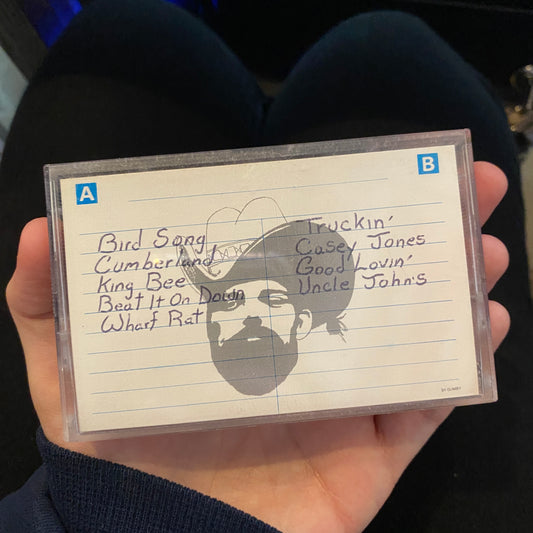 A
B
Bird Song
Cumberland
King Bee
Beat It On Down
Wharf Rat
Truckin'
Casey Jones
Good Lovin'
Uncle John's